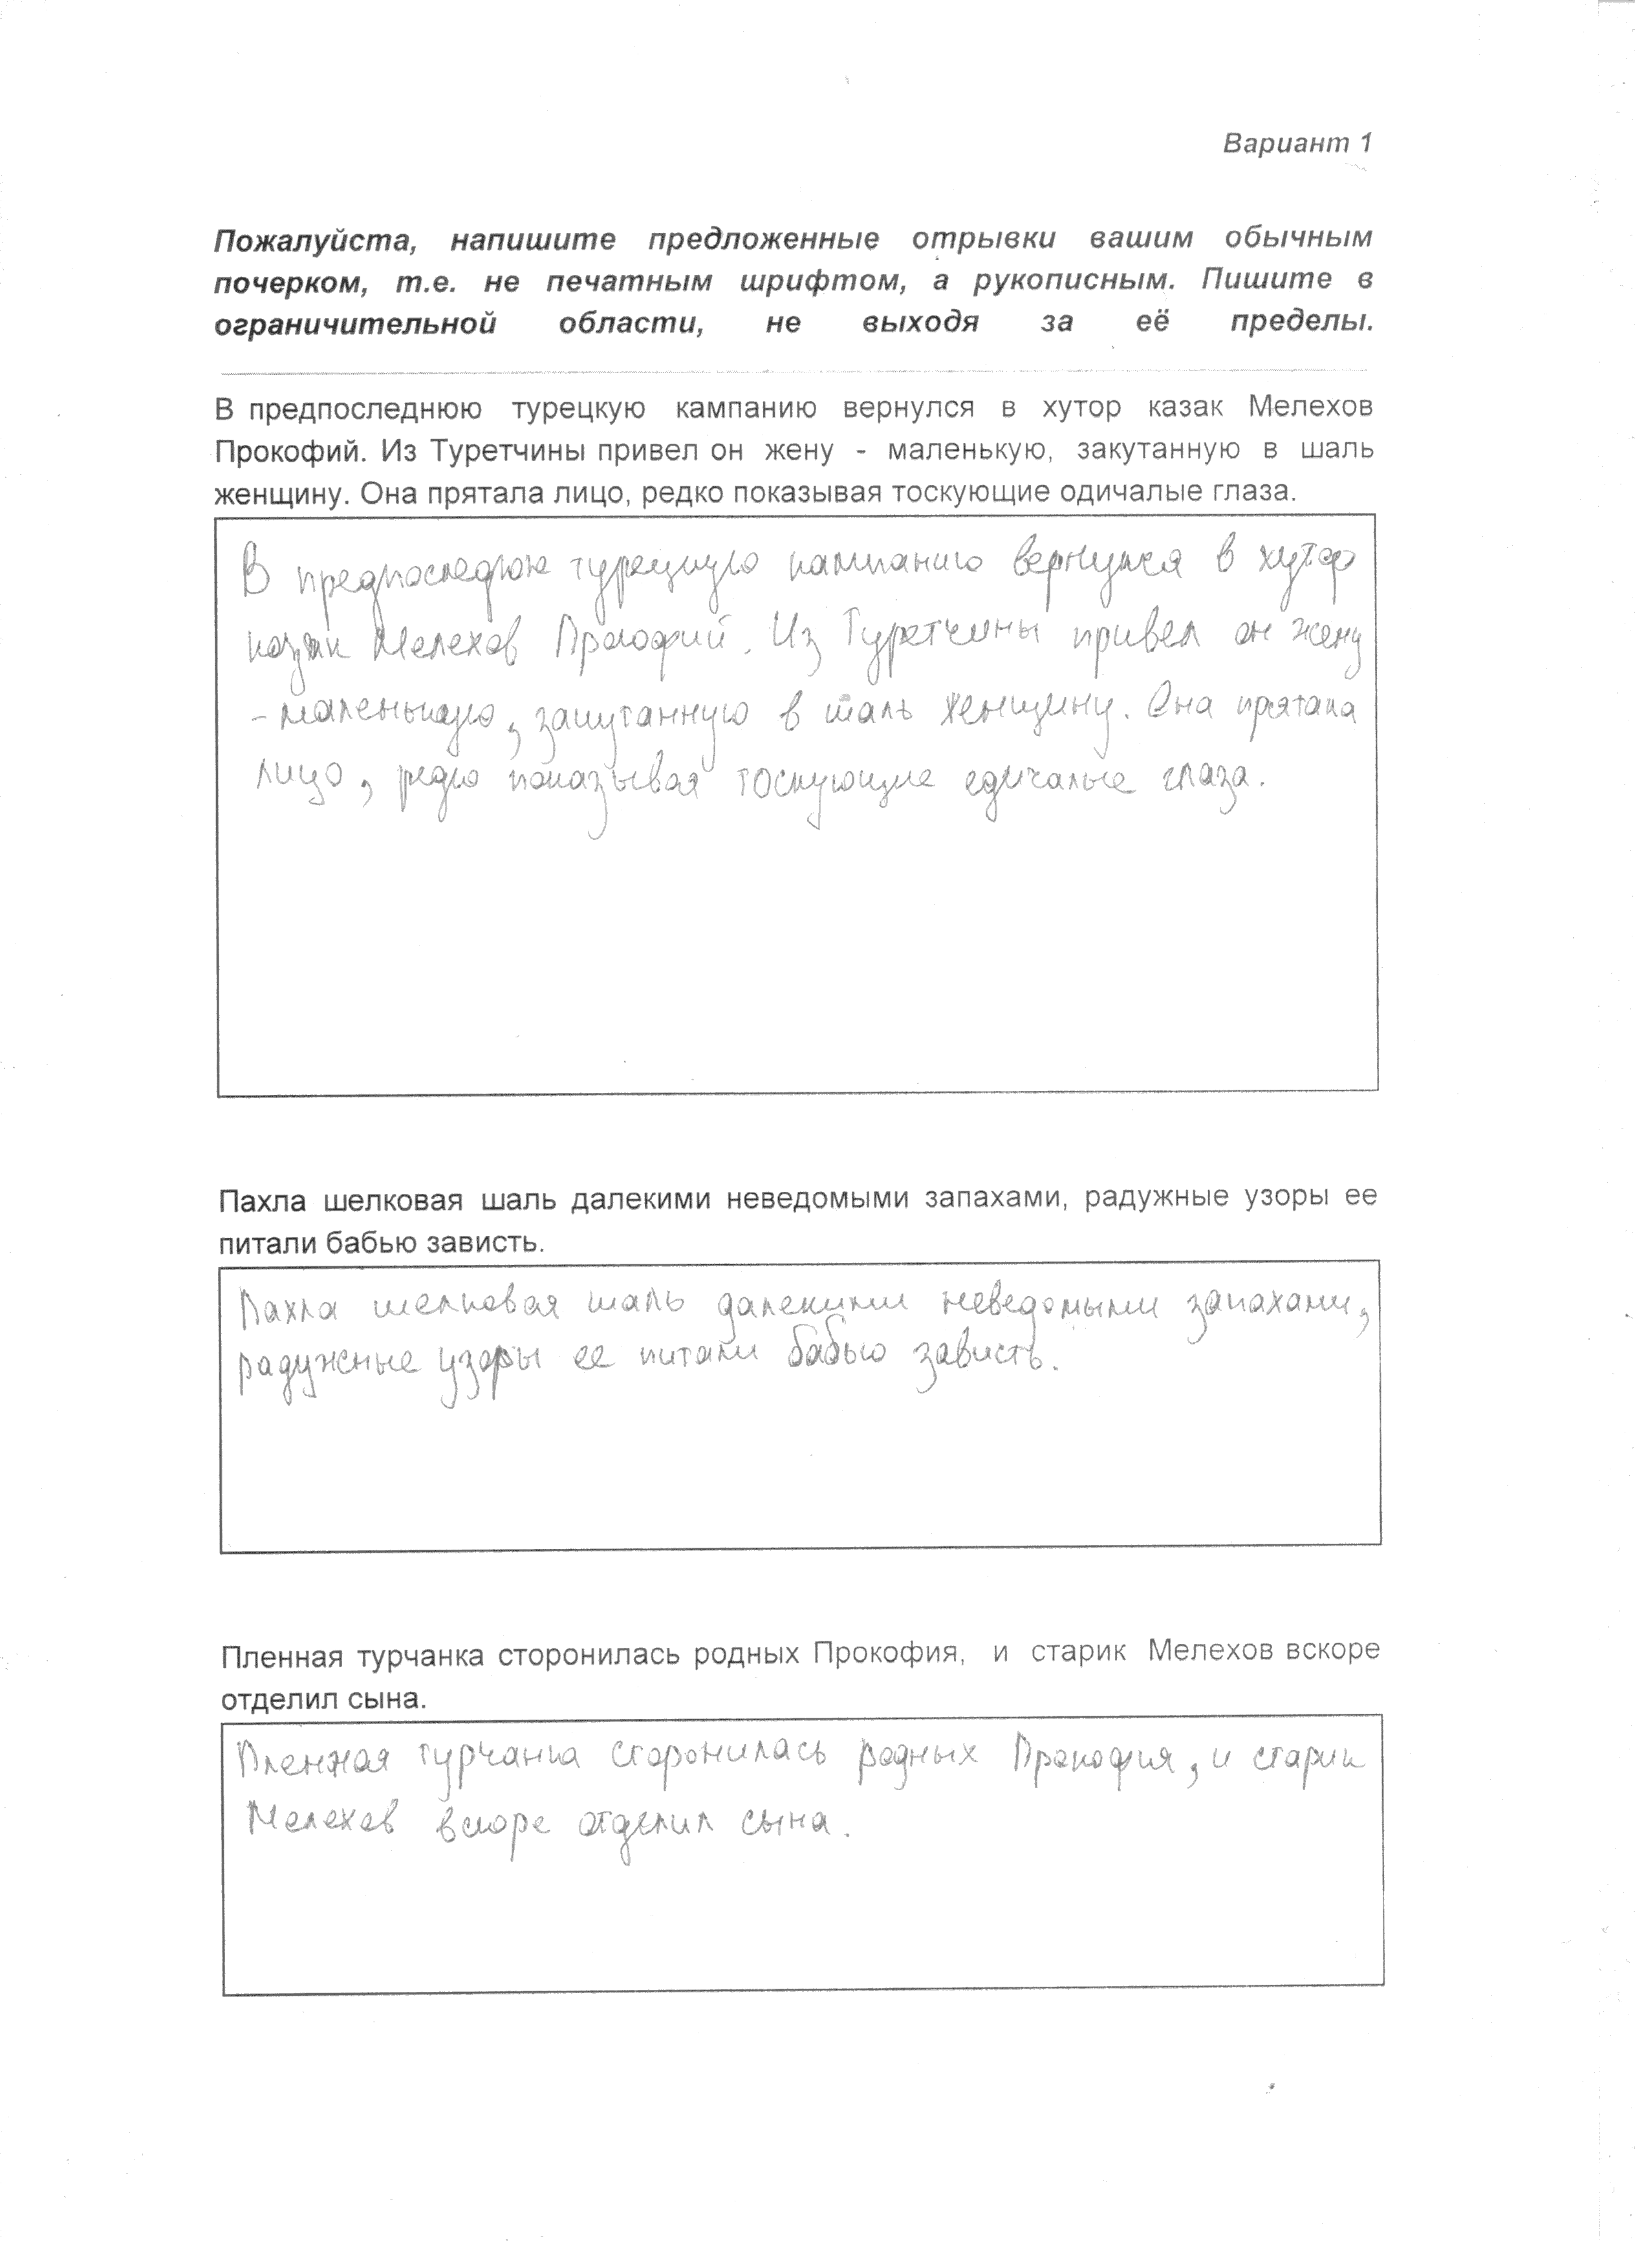 Вариант 1
Пожалуйста, напишите предложенные отрывки вашим обычным
почерком, т.е. не печатным шрифтом, а рукописным. Пишите в
ограничительной области, не выходя за её пределы.
В предпоследнюю турецкую кампанию вернулся в хутор казак Мелехов
Прокофий. Из Туретчины привел он жену - маленькую, закутанную в шаль
женщину. Она прятала лицо, редко показывая тоскующие одичалые глаза.
В предпоследюю турецкую кампанию вернулся в хутор
казак Мелехов Прокофий. Из Туретчины привел он жену
- маленькую, закутанную в шаль женщину. Она прятала
лицо, редко показывая тоскующие одичалые глаза.
Пахла шелковая шаль далекими неведомыми запахами, радужные узоры ее
питали бабью зависть.
Пахла шелковая шаль далекими неведомыми запахами,
радужные узоры ее питали бабью зависть.
Пленная турчанка сторонилась родных Прокофия, и старик Мелехов вскоре
отделил сына.
Пленная турчанка сторонилась родных Прокофия, и старик
Мелехов вскоре отделил сына.